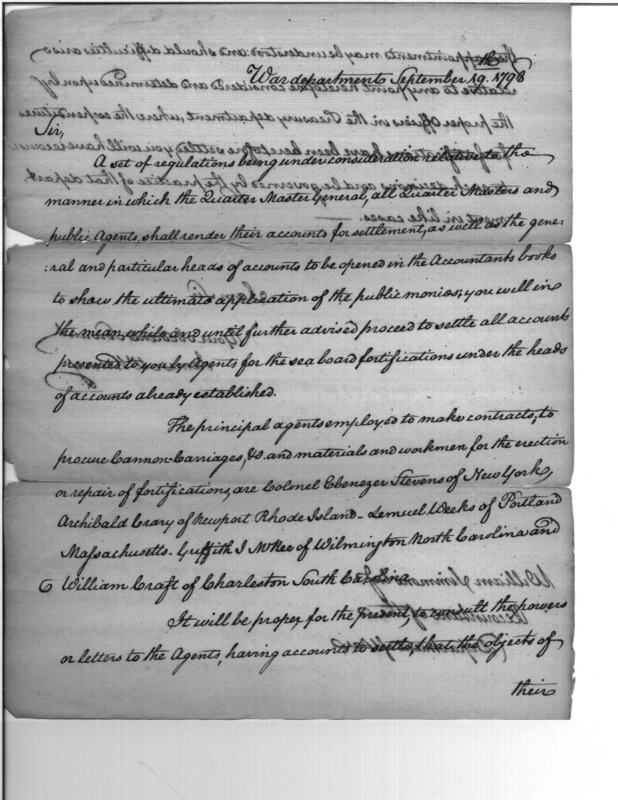 War department September 19th 1798
Sir,
A set of regulations being under consideration relative to the
manner in which the Quarter Master General, all Quarter Masters and
public Agents, shall render their accounts for settlement, as well as the gene=
:ral and particular heads of accounts to be opened in the Accountants books
to show the ultimate application of the public monies; you will in
the mean while and until further advised proceed to settle all accounts
presented to you by Agents for the sea board fortifications under the heads
of accounts already established.
The principal agents employed to make contracts, to
procure Cannon Carriages, &c. and materials and workmen for the erection
or repair of fortifications, are Colonel Ebenezer Stevens of New York,
Archibald Crary of Newport Rhode Island - Lemuel Weeks of Portland
Massachusetts - Griffith J McRee of Wilmington North Carolina and
William Craft of Charleston South Carolina
It will be proper for the present, to consult the powers
or letters to the Agents, having accounts to settle, that the objects of
their